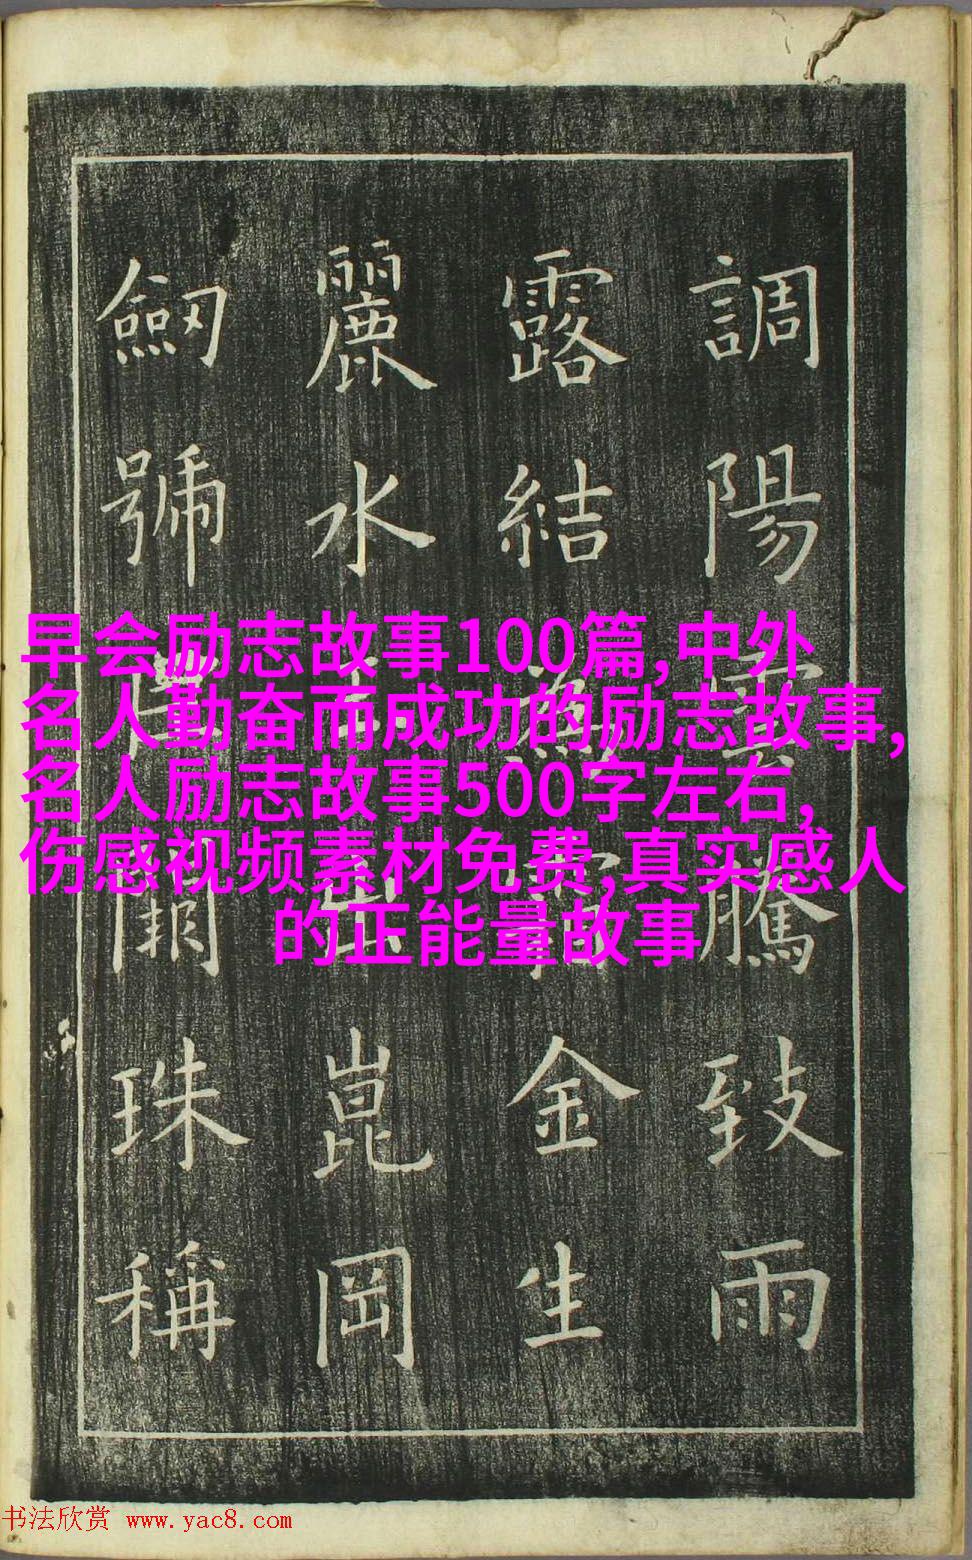 調陽雲騰致雨
露結金生
麗水崑岡
劒號珠稱
早会励志故事100篇,中外
名人勤奋而成功的励志故事,
名人励志故事500字左右,
伤感视频素材免费,真实感人
的正能量故事
书法欣赏 www.yac8.com